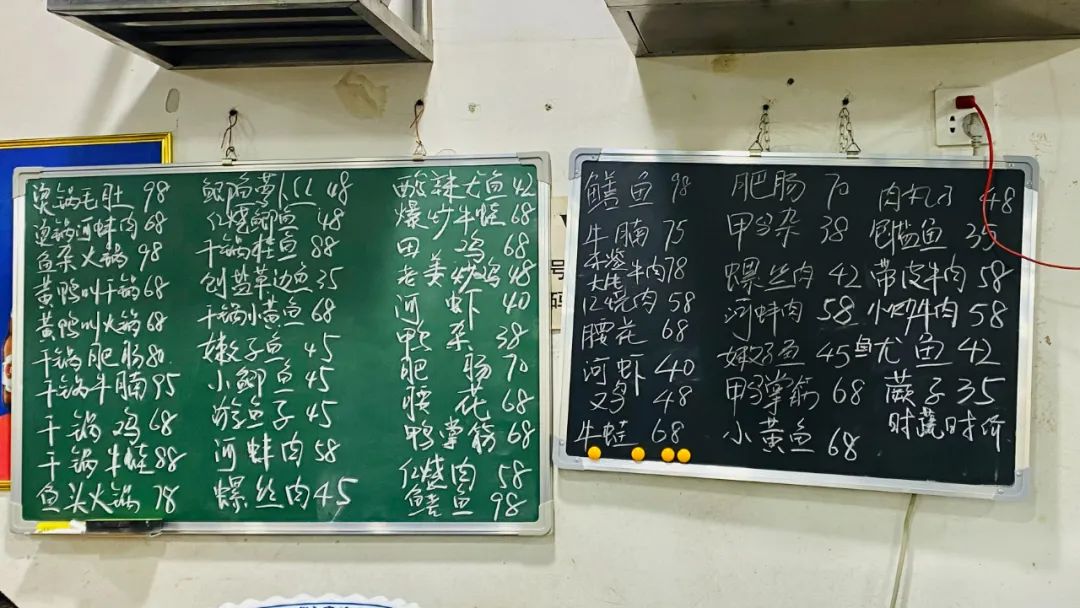 烫锅毛肚 98
烫锅河蚌肉 68
鱼杂火锅 98
黄鸭叫干锅 68
黄鸭叫火锅 68
干锅肥肠 80
干锅牛腩 95
干锅鸡 68
干锅牛蛙 88
鱼头火锅 78
鲫鱼萝卜丝 48
红烧鲫鱼 48
干锅桂鱼 88
刨盐草边鱼 35
干锅小黄鱼 68
嫩子鱼 45
小鲫鱼 45
游鱼子 45
河蚌肉 58
螺丝肉 45
酸辣尤鱼 42
爆炒牛蛙 68
田鸡 68
老姜炒鸡 48
河虾 40
鸭杂 38
肥肠 70
腰花 68
鸭掌筋 68
红烧肉 58
鳝鱼 98
鳝鱼 98
牛腩 75
牛肉 78
红烧肉 58
腰花 68
河虾 40
鸡 48
牛蛙 68
肥肠 70
鸭杂 38
螺丝肉 42
河蚌肉 58
嫩子鱼 45
鸭掌筋 68
小黄鱼 68
48
刨盐鱼 35
带皮牛肉 58
小炒牛肉 58
尤鱼 42
蕨子 35
时蔬时价
号
码